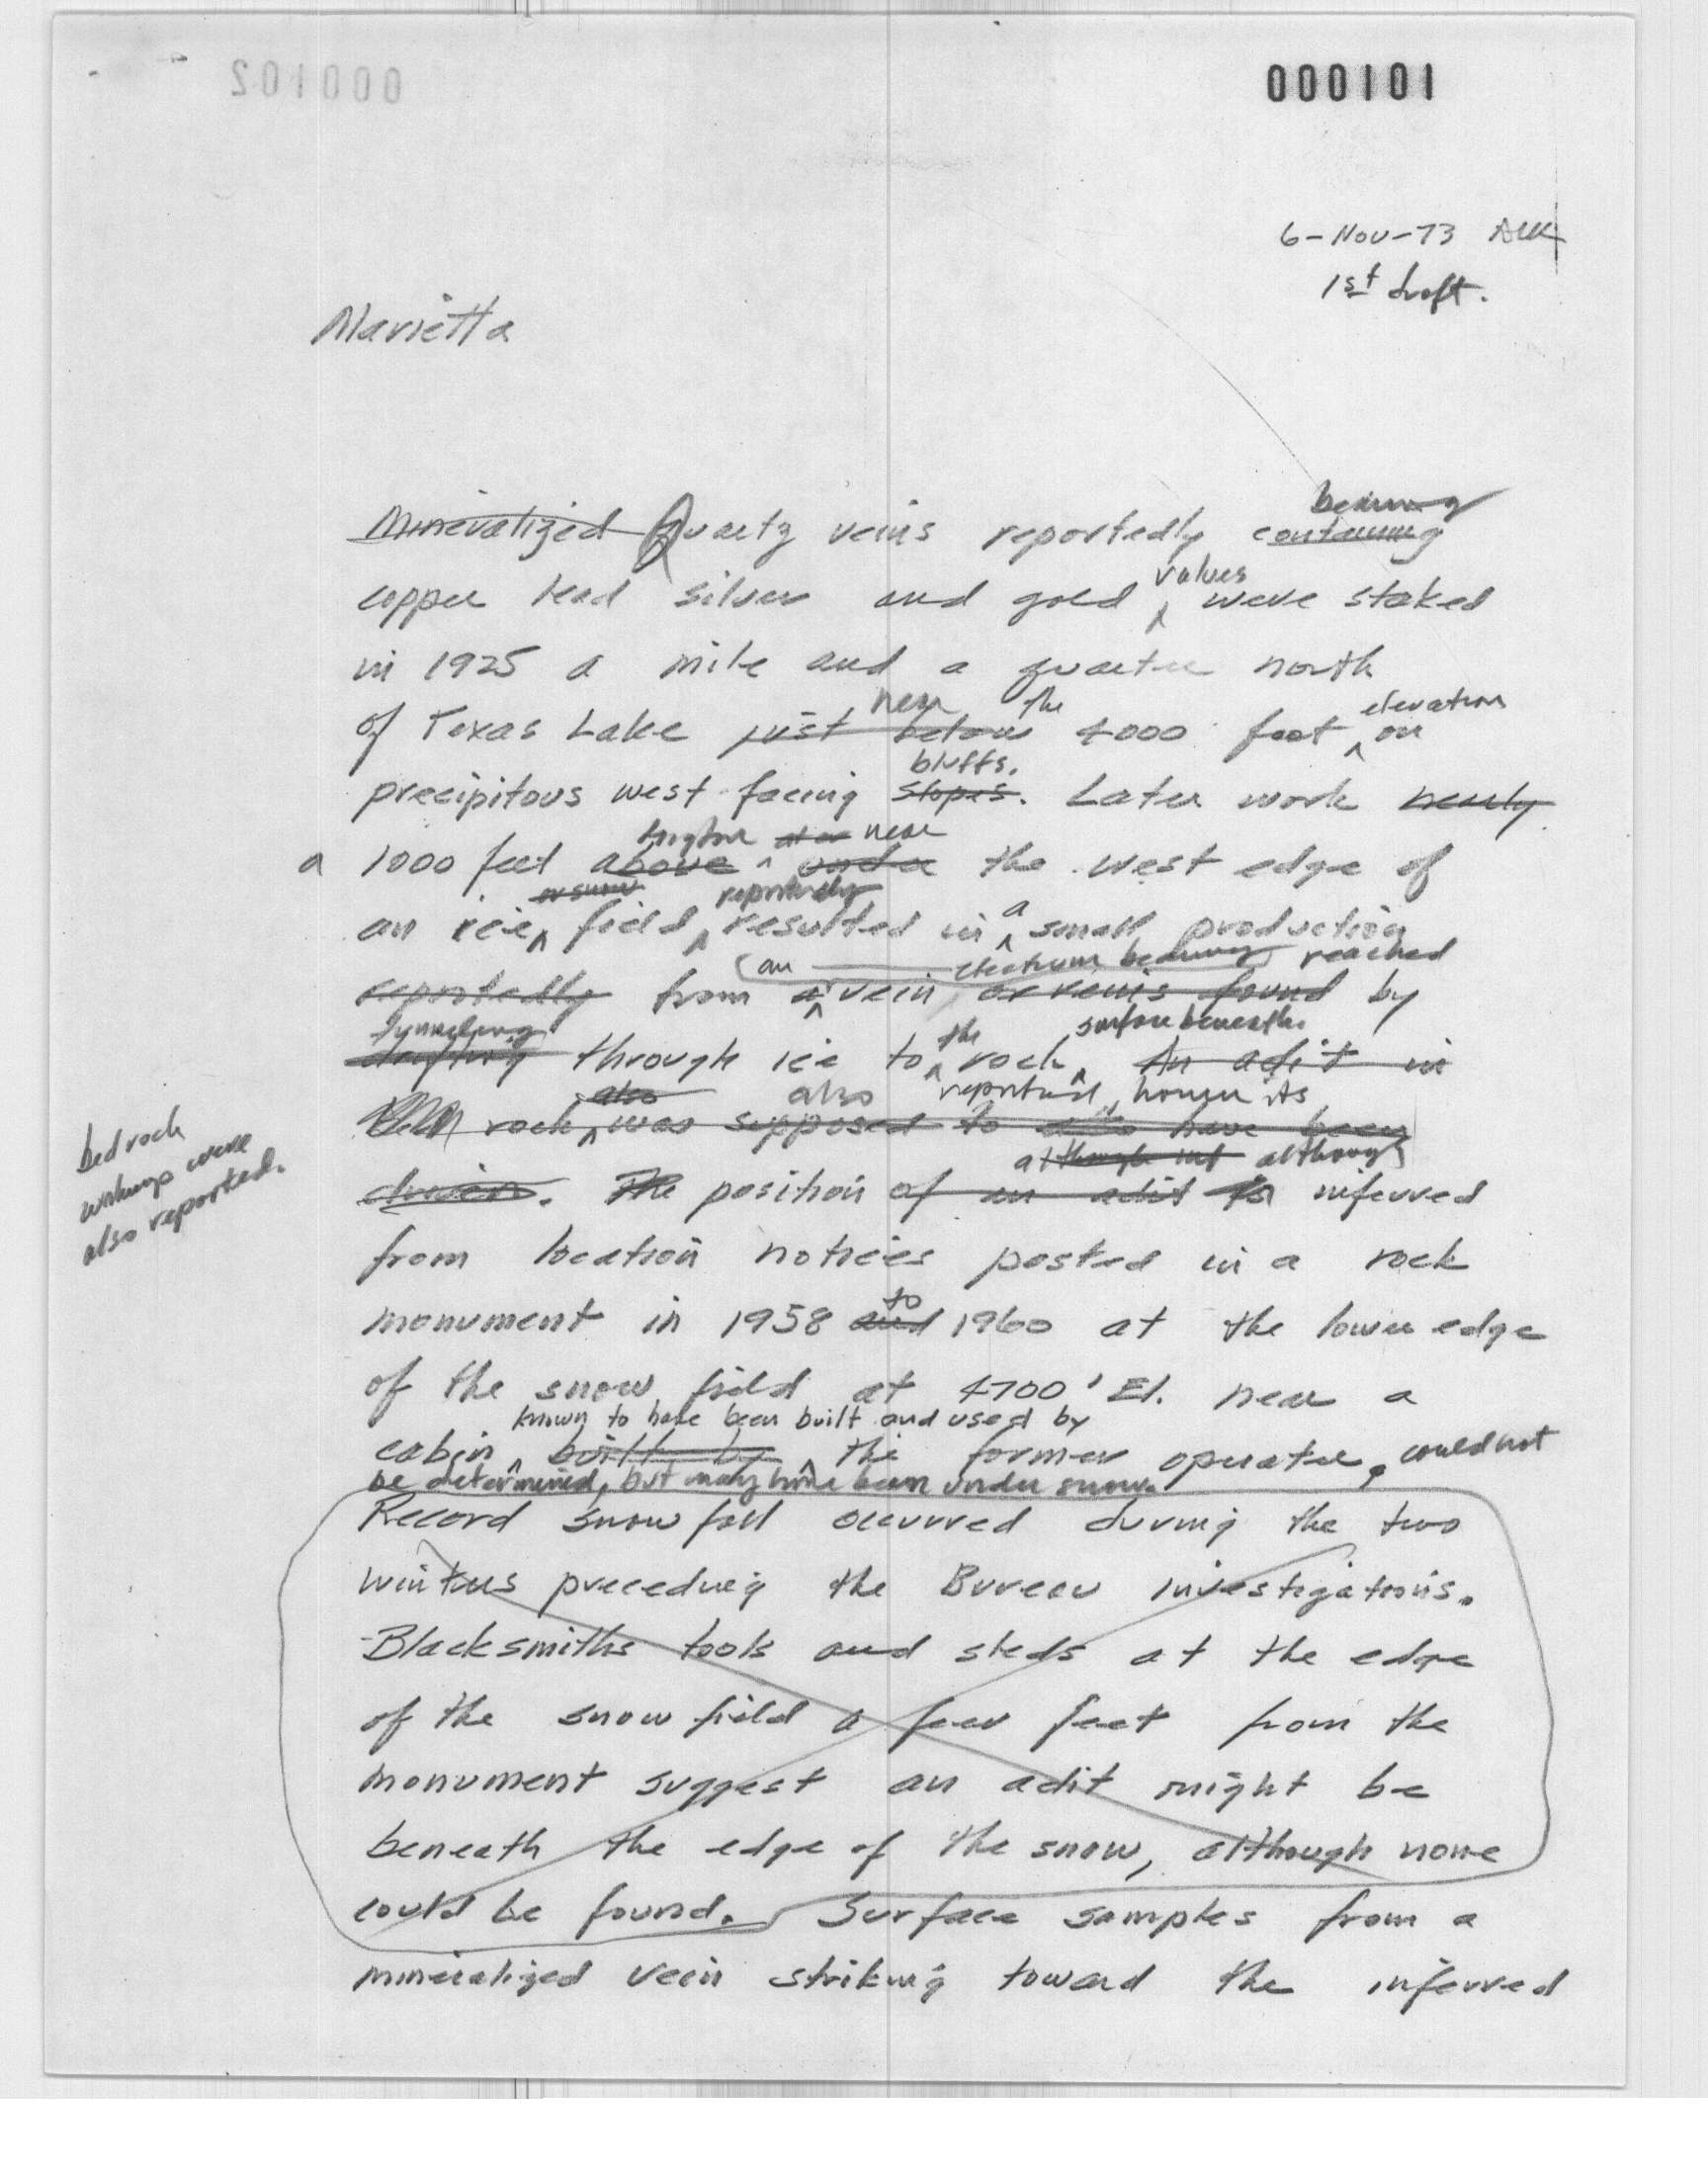 000102
000101
6-Nov-73 AUK
1st draft.
Marietta
bearing
Mineralized Quartz veins reportedly containing
values
copper lead silver and gold were staked
in 1925 a mile and a quarter north
near the elevation
of Texas Lake just below 4000 foot on
bluffs.
precipitous west facing slopes. Later work nearly
higher near
a 1000 feet above under the west edge of
or snow reportedly a
an ice field, resulted in small production
an electrum bearing reached
reportedly from a vein, or veins found by
tunneling the surface beneath.
drifting through ice to rock. An adit in
also also reported, however its
rock was supposed to also have been
bedrock
workings were
also reported.
although not although
driven. The position of an adit is inferred
from location notices posted in a rock
to
monument in 1958 and 1960 at the lower edge
of the snow field at 4700' El. near a
known to have been built and used by
cabin, built by the former operator, could not
be determined, but may have been under snow.
Record snow fall occurred during the two
winters preceding the Bureau investigations.
Blacksmiths tools and steels at the edge
of the snow field a few feet from the
monument suggest an adit might be
beneath the edge of the snow, although none
could be found. Surface samples from a
mineralized vein striking toward the inferred